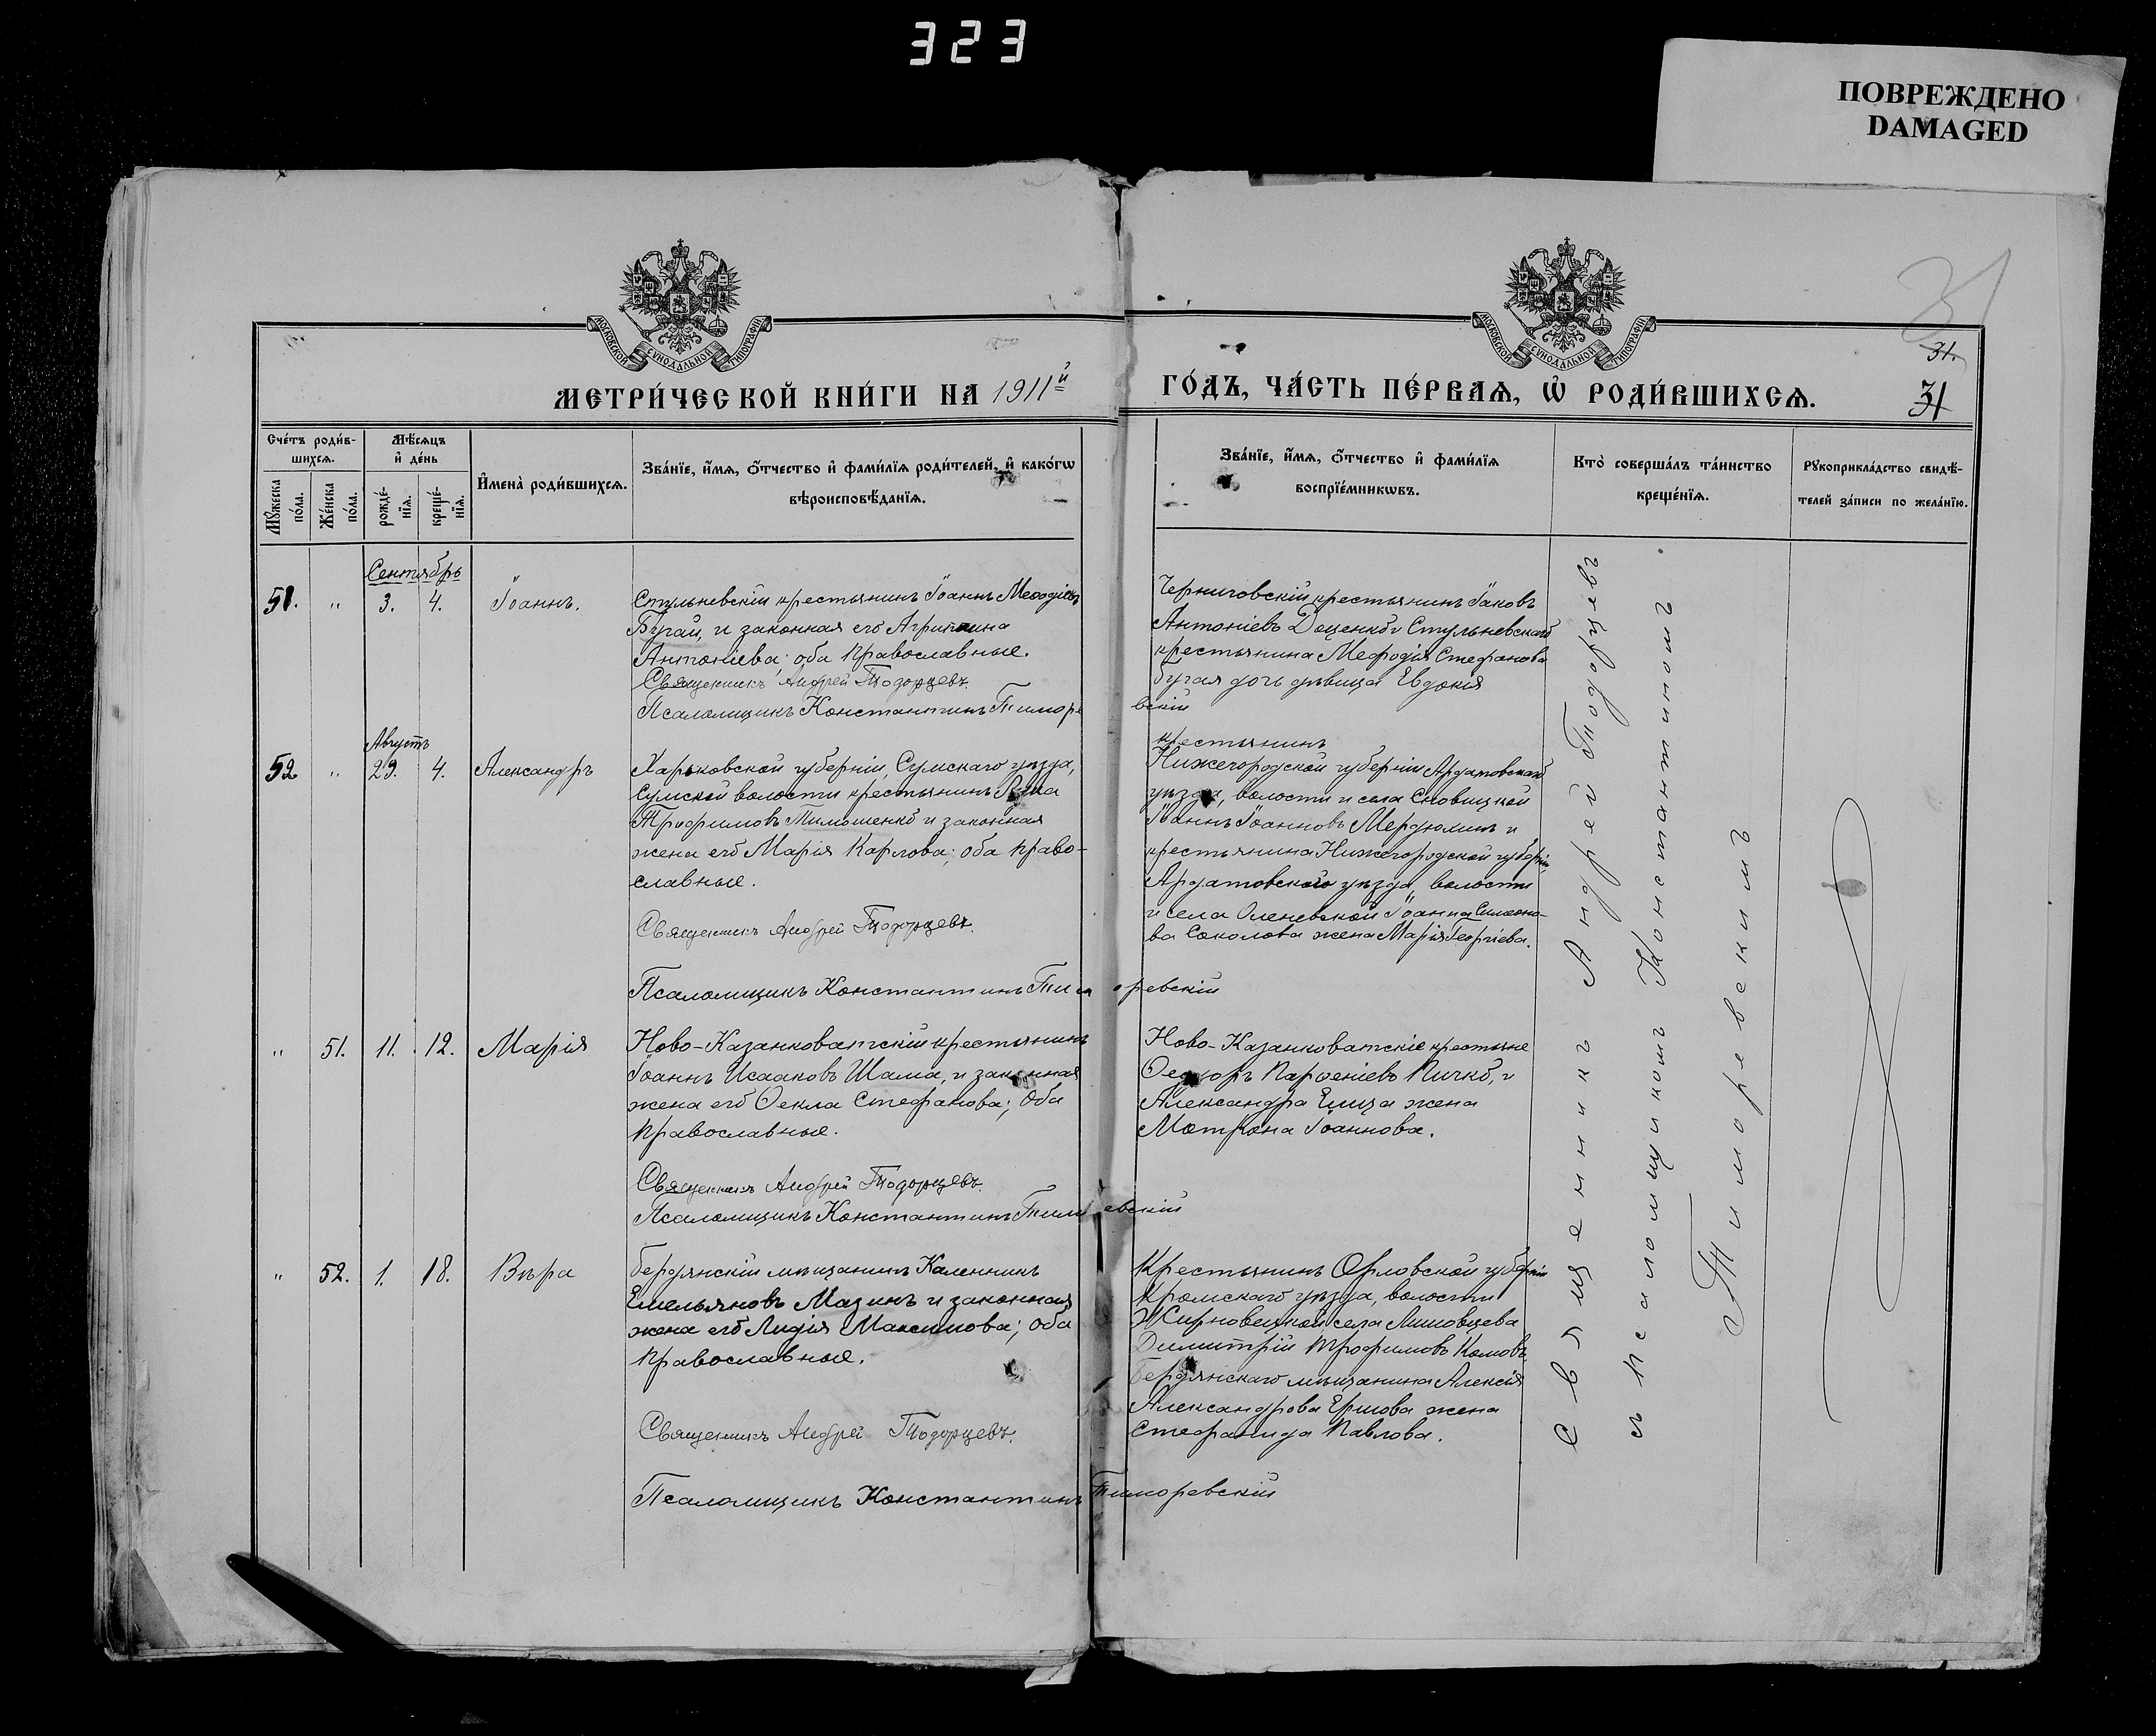 323
ПОВРЕЖДЕНО
DAMAGED
МОСКОВСКОЙ СѴНОДАЛЬНОЙ ТИПОГРАФІИ
МОСКОВСКОЙ СѴНОДАЛЬНОЙ ТИПОГРАФІИ
31.
31
МЕТРИ́ЧЕСКОЙ КНИ́ГИ НА 1911й
ГО́ДЪ, ЧА́СТЬ ПЕ́РВАѦ, Ѡ РОДИ́ВШИХСѦ.
Сче́тъ роди́в-
шихсѧ.
Мꙋ́жеска по́ла.
Же́нска по́ла.
Мѣ́сѧцъ
и҆ де́нь
рожде́-
нїѧ.
креще́-
нїѧ.
И҆мена̀ роди́вшихсѧ.
Зва́нїе, и҆́мѧ, ѻ҆́тчество и҆ фами́лїѧ роди́телей, и҆ како́гѡ
вѣроисповѣ́данїѧ.
Зва́нїе, и҆́мѧ, ѻ҆́тчество и҆ фами́лїѧ
воспрїе́мникѡвъ.
Кто̀ соверша́лъ та́инство
креще́нїѧ.
Рꙋкоприкла́дство свидѣ́-
телей за́писи по жела́нїю.
Сентябрь
51. " 3. 4. Іоаннъ.
Стульневскій крестьянинъ Іоаннъ Меѳодіевъ
Бугай, и законная его Агриппина
Антоніева; оба православные.
Священникъ Андрей Тодорцевъ.
Псаломщикъ Константинъ Тиморевскій
Черниговскій крестьянинъ Іаковъ
Антоніевъ Доценко и Стульневскаго
крестьянина Мефодія Стефанова
Бугая дочь дѣвица Евдокія
Августъ
52 " 29. 4. Александръ
Харьковской губерніи, Сумскаго уѣзда,
Сумской волости крестьянинъ
Трофимовъ Тимошенко и законная
жена его Марія Карлова; оба право-
славные.
Священникъ Андрей Тодорцевъ.
Псаломщикъ Константинъ Тиморевскій
крестьянинъ
Нижегородской губерніи Ардатовскаго
уѣзда, волости и села
Іоаннъ Іоанновъ и
крестьянина Нижегородской губерніи,
Ардатовскаго уѣзда, волости
и села Іоанна Симеоно-
ва Соколова жена Марія Георгіева.
" 51. 11. 12. Марія
Ново-Казанковатскій крестьянинъ
Іоаннъ Исааковъ Шама, и законная
жена его Ѳекла Стефанова; оба
православные.
Священникъ Андрей Тодорцевъ.
Псаломщикъ Константинъ Тиморевскій
Ново-Казанковатскіе крестьяне
Ѳеодоръ Парѳеніевъ Пичко, и
Александра жена
Матрона Іоаннова.
" 52. 1. 18. Вѣра
Бердянскій мѣщанинъ Каленникъ
Емельяновъ Мазинъ и законная
жена его Лидія Максимова; оба
православные.
Священникъ Андрей Тодорцевъ.
Псаломщикъ Константинъ Тиморевскій
Крестьянинъ Орловской губерніи
Кромскаго уѣзда, волости
Жирновецкой села
Димитрій Трофимовъ Комовъ,
Бердянскаго мѣщанина Алексія
Александрова Ершова жена
Стефанида Павлова.
Священникъ Андрей Тодорцевъ
съ псаломщикомъ Константиномъ
Тиморевскимъ